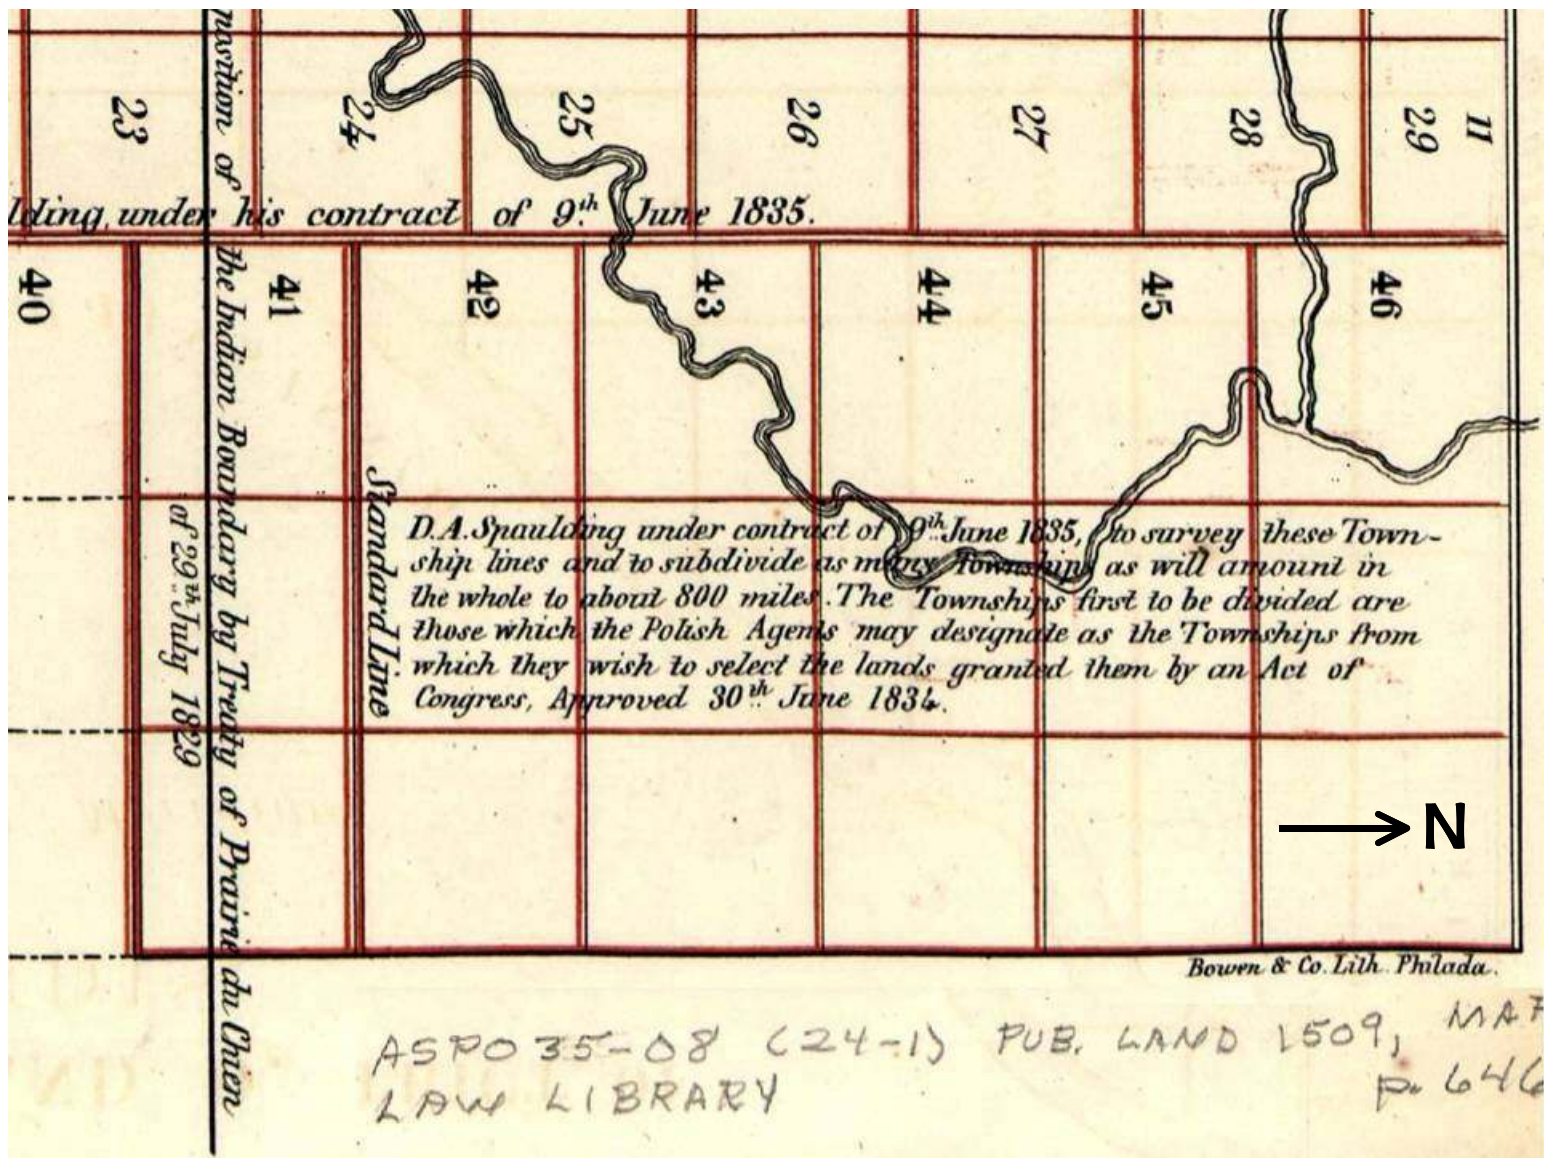 23 24 25 26 27 28 29 11
lding, under his contract of 9th June 1835.
40 41 42 43 44 45 46
position of the Indian Boundary by Treaty of Prairie du Chien
of 29th July 1829
Standard Line
D. A. Spaulding under contract of 9th June 1835, to survey these Town-
ship lines and to subdivide as many Townships as will amount in
the whole to about 800 miles. The Townships first to be divided are
those which the Polish Agents may designate as the Townships from
which they wish to select the lands granted them by an Act of
Congress, Approved 30th June 1834.
N
Bowen & Co. Lith. Philada.
ASP035-08 (24-1) PUB. LAND 1509, MAP
LAW LIBRARY p. 646